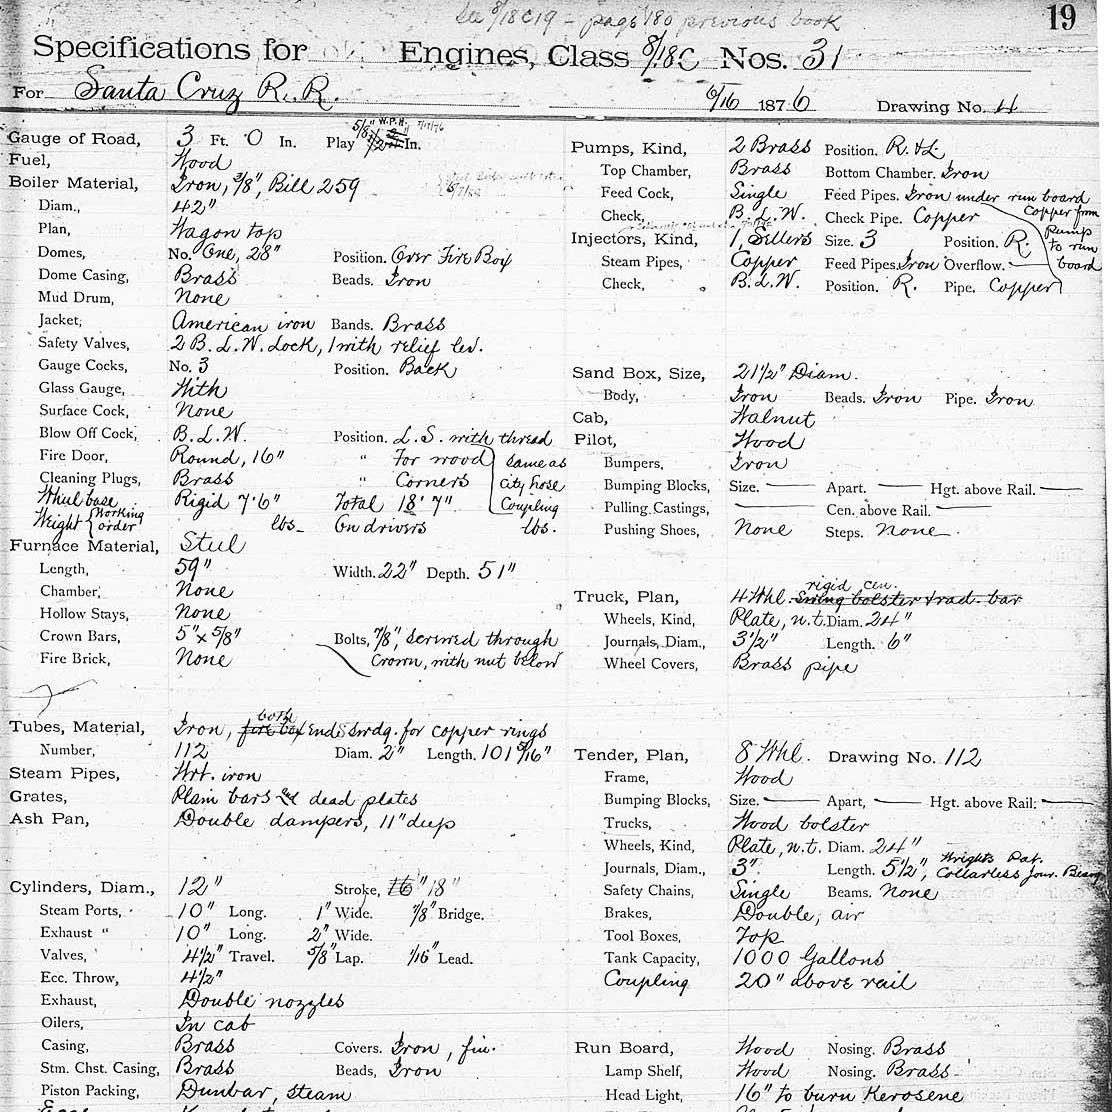 See 8/18 C 19 – page 180 previous book
19
Specifications for Engines, Class 8/18C Nos. 31
For Santa Cruz R. R. 6/16 1876 Drawing No. 4
Gauge of Road, 3 Ft. 0 In. Play 5/8" W.P.H. 7/17/76 1/2 In.
Fuel, Wood
Boiler Material, Iron, 3/8", Bill 259
Diam., 42"
Plan, Wagon top
Domes, No. One, 28" Position. Over Fire Box
Dome Casing, Brass Beads. Iron
Mud Drum, None
Jacket, American iron Bands. Brass
Safety Valves, 2 B. L. W. Lock, 1 with relief lev.
Gauge Cocks, No. 3 Position. Back
Glass Gauge, With
Surface Cock, None
Blow Off Cock, B. L. W. Position. L. S. with thread
Fire Door, Round, 16" " For wood same as
Cleaning Plugs, Brass " Corners city hose
Whul base Rigid 7' 6" Total 18' 7" Coupling
Weight working order lbs. On drivers lbs.
Furnace Material, Steel
Length, 59" Width. 22" Depth. 51"
Chamber, None
Hollow Stays, None
Crown Bars, 5" x 5/8" Bolts, 7/8", screwed through
Fire Brick, None Crown, with nut below
Tubes, Material, Iron, fire box both Ends Swdg. for copper rings
Number, 112 Diam. 2" Length. 101 5/16"
Steam Pipes, Wrt. iron
Grates, Plain bars and dead plates
Ash Pan, Double dampers, 11" deep
Cylinders, Diam., 12" Stroke, 16" 18"
Steam Ports, 10" Long. 1" Wide. 7/8" Bridge.
Exhaust " 10" Long. 2" Wide.
Valves, 4 1/2" Travel. 5/8" Lap. 1/16" Lead.
Ecc. Throw, 4 1/2"
Exhaust, Double nozzles
Oilers, In cab
Casing, Brass Covers. Iron, fin.
Stm. Chst. Casing, Brass Beads, Iron
Piston Packing, Dunbar, steam
Pumps, Kind, 2 Brass Position. R. & L.
Top Chamber, Brass Bottom Chamber. Iron
Feed Cock, Single Feed Pipes. Iron under run board
Check, B. L. W. Check Pipe. Copper Copper from Pump to run board
Injectors, Kind, 1, Sellers Size. 3 Position. R.
Steam Pipes, Copper Feed Pipes. Iron Overflow. —
Check, B. L. W. Position. R. Pipe. Copper
Sand Box, Size, 21 1/2" Diam.
Body, Iron Beads. Iron Pipe. Iron
Cab, Walnut
Pilot, Wood
Bumpers, Iron
Bumping Blocks, Size. — Apart. — Hgt. above Rail. —
Pulling Castings, — Cen. above Rail. —
Pushing Shoes, None Steps. None.
Truck, Plan, 4 Whl. rigid cen. Swing bolster & rad. bar
Wheels, Kind, Plate, n.t. Diam. 24"
Journals, Diam., 3 1/2" Length. 6"
Wheel Covers, Brass pipe
Tender, Plan, 8 Whl. Drawing No. 112
Frame, Wood
Bumping Blocks, Size. — Apart, — Hgt. above Rail. —
Trucks, Wood bolster
Wheels, Kind, Plate, n.t. Diam. 24"
Journals, Diam., 3" Length. 5 1/2", Wrights Pat. Collarless Jour. Bearg
Safety Chains, Single Beams. None
Brakes, Double, air
Tool Boxes, Top
Tank Capacity, 1000 Gallons
Coupling 20" above rail
Run Board, Wood Nosing. Brass
Lamp Shelf, Wood Nosing. Brass
Head Light, 16" to burn Kerosene